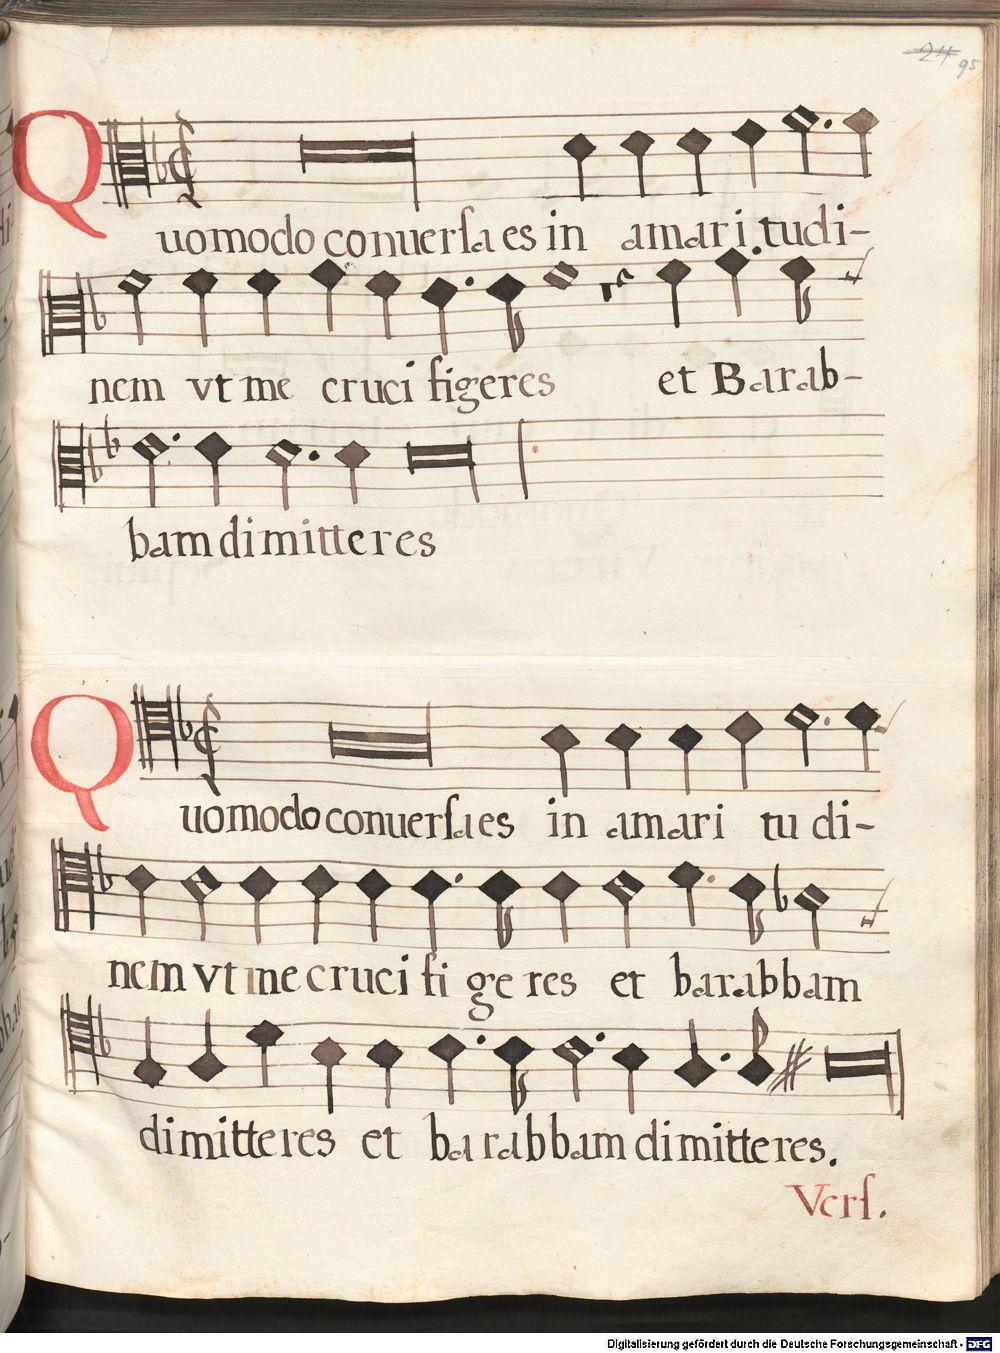 24 95
Quomodo conuersa es in amaritudi-
nem vt me crucifigeres et Barab-
bam dimitteres
Quomodo conuersa es in amari tu di-
nem vt me cruci fi ge res et barabbam
dimitteres et barabbam dimitteres.
Vers.
Digitalisierung gefördert durch die Deutsche Forschungsgemeinschaft - DFG